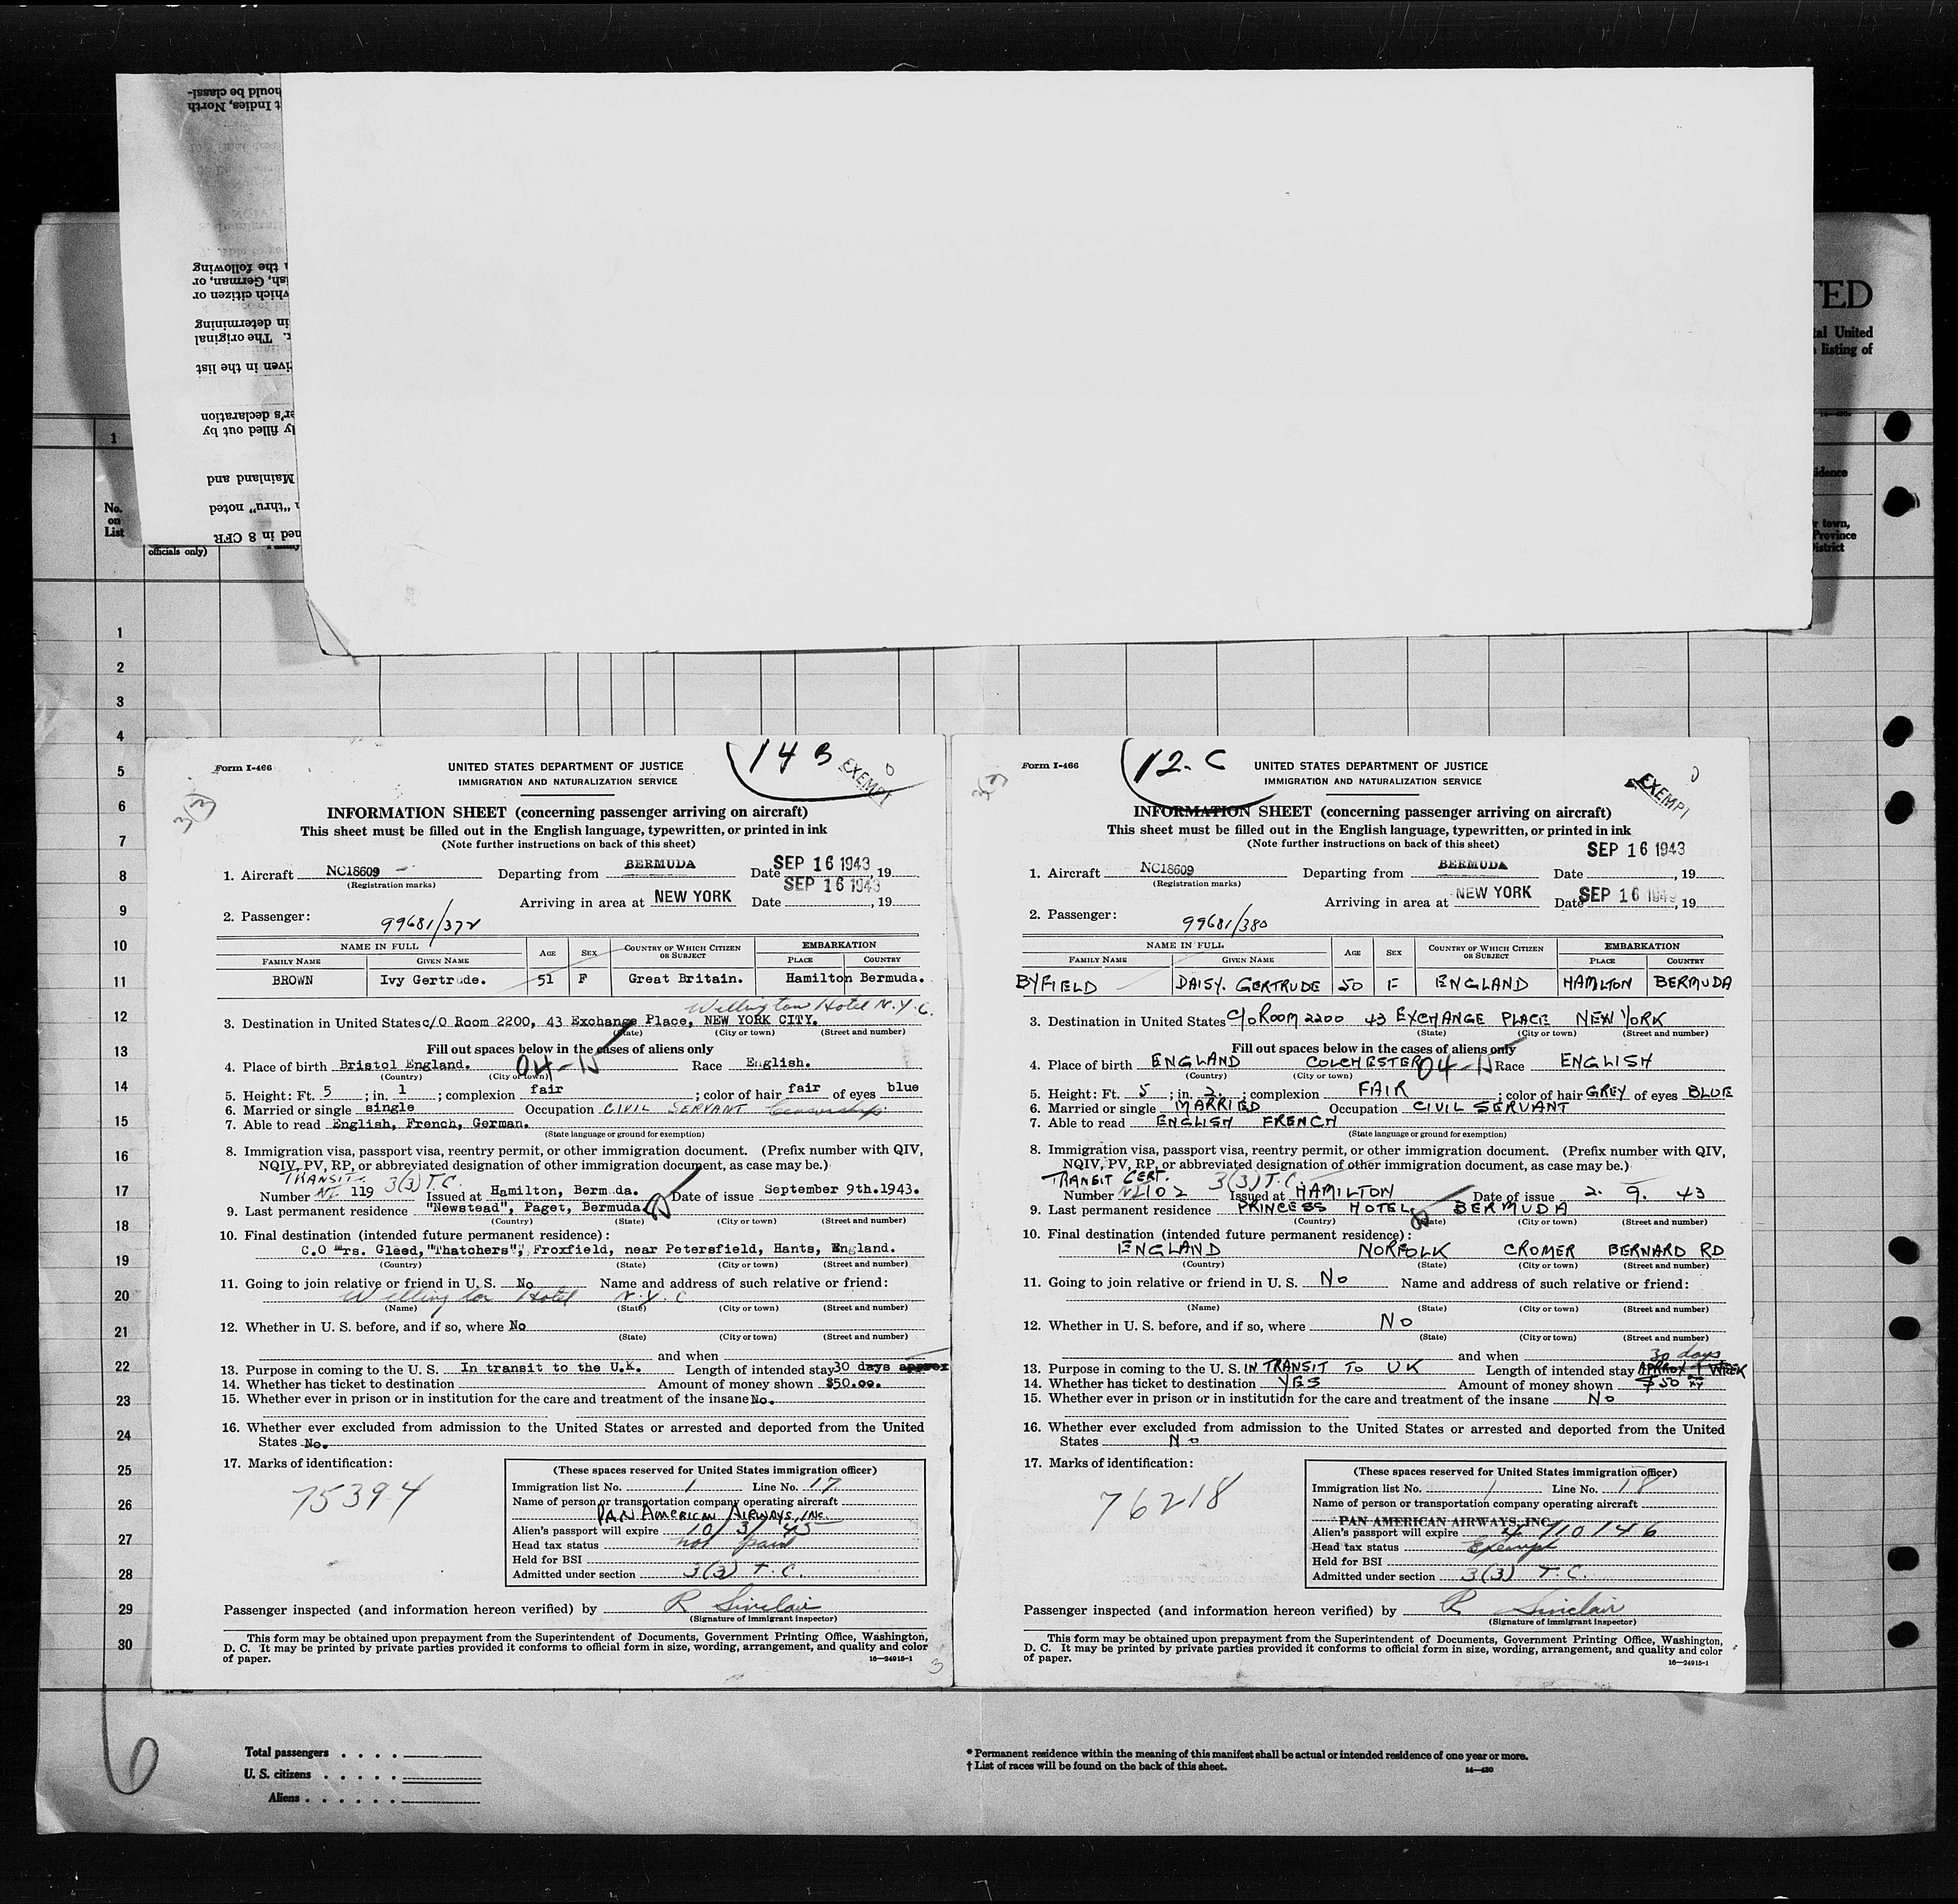 TED
tal United
listing of
idence
r town,
Province
District
hould be classi-
t Indies, North
n the following
ish, German, or
which citizen or
in determining
t. The original
iven in the list
er's declaration
ly filled out by
Mainland and
n "thru" noted
ned in 8 CFR
1
No.
on
List
officials only)
1
2
3
4
5
6
7
8
9
10
11
12
13
14
15
16
17
18
19
20
21
22
23
24
25
26
27
28
29
30
14 B
EXEMPT
Form I-466
UNITED STATES DEPARTMENT OF JUSTICE
IMMIGRATION AND NATURALIZATION SERVICE
3(3)
INFORMATION SHEET (concerning passenger arriving on aircraft)
This sheet must be filled out in the English language, typewritten, or printed in ink
(Note further instructions on back of this sheet)
1. Aircraft NC18609 Departing from BERMUDA Date SEP 16 1943, 19
(Registration marks)
Arriving in area at NEW YORK Date SEP 16 1943, 19
2. Passenger: 99681/372
NAME IN FULL AGE SEX COUNTRY OF WHICH CITIZEN OR SUBJECT EMBARKATION
FAMILY NAME GIVEN NAME PLACE COUNTRY
BROWN Ivy Gertrude. 51 F Great Britain. Hamilton Bermuda.
Wellington Hotel N.Y.C.
3. Destination in United States c/O Room 2200, 43 Exchange Place, NEW YORK CITY.
(State) (City or town) (Street and number)
Fill out spaces below in the cases of aliens only
4. Place of birth Bristol England. 04-15 Race English.
(Country) (City or town)
5. Height: Ft. 5; in. 1; complexion fair; color of hair fair of eyes blue
6. Married or single single Occupation CIVIL SERVANT Censorship
7. Able to read English, French, German.
(State language or ground for exemption)
8. Immigration visa, passport visa, reentry permit, or other immigration document. (Prefix number with QIV,
NQIV, PV, RP, or abbreviated designation of other immigration document, as case may be.)
TRANSIT
Number 119 3(3) T.C. Issued at Hamilton, Bermuda. Date of issue September 9th.1943.
9. Last permanent residence "Newstead", Paget, Bermuda.
(Country) (State) (City or town) (Street and number)
10. Final destination (intended future permanent residence):
C.O Mrs. Gleed,"Thatchers", Froxfield, near Petersfield, Hants, England.
(Country) (State) (City or town) (Street and number)
11. Going to join relative or friend in U. S. No Name and address of such relative or friend:
Wellington Hotel N.Y.C
(Name) (State) (City or town) (Street and number)
12. Whether in U. S. before, and if so, where No
(State) (City or town) (Street and number)
and when
13. Purpose in coming to the U. S. In transit to the U.K. Length of intended stay 30 days approx
14. Whether has ticket to destination Amount of money shown $50.00.
15. Whether ever in prison or in institution for the care and treatment of the insane No.
16. Whether ever excluded from admission to the United States or arrested and deported from the United
States No.
17. Marks of identification:
75394
(These spaces reserved for United States immigration officer)
Immigration list No. 1 Line No. 17
Name of person or transportation company operating aircraft
PAN AMERICAN AIRWAYS, INC.
Alien's passport will expire 10/3/45
Head tax status not paid
Held for BSI
Admitted under section 3(3) T.C.
Passenger inspected (and information hereon verified) by R Sinclair
(Signature of immigrant inspector)
This form may be obtained upon prepayment from the Superintendent of Documents, Government Printing Office, Washington,
D. C. It may be printed by private parties provided it conforms to official form in size, wording, arrangement, and quality and color
of paper.
16—24915-1
3
12. C
EXEMPT
Form I-466
UNITED STATES DEPARTMENT OF JUSTICE
IMMIGRATION AND NATURALIZATION SERVICE
3(3)
INFORMATION SHEET (concerning passenger arriving on aircraft)
This sheet must be filled out in the English language, typewritten, or printed in ink
(Note further instructions on back of this sheet)
SEP 16 1943
1. Aircraft NC18609 Departing from BERMUDA Date , 19
(Registration marks)
Arriving in area at NEW YORK Date SEP 16 1943, 19
2. Passenger: 99681/380
NAME IN FULL AGE SEX COUNTRY OF WHICH CITIZEN OR SUBJECT EMBARKATION
FAMILY NAME GIVEN NAME PLACE COUNTRY
BYFIELD DAISY. GERTRUDE 50 F ENGLAND HAMILTON BERMUDA
3. Destination in United States C/o ROOM 2200 43 EXCHANGE PLACE NEW YORK
(State) (City or town) (Street and number)
Fill out spaces below in the cases of aliens only
4. Place of birth ENGLAND COLCHESTER 04-15 Race ENGLISH
(Country) (City or town)
5. Height: Ft. 5; in. 2.; complexion FAIR; color of hair GREY of eyes BLUE
6. Married or single MARRIED Occupation CIVIL SERVANT
7. Able to read ENGLISH FRENCH
(State language or ground for exemption)
8. Immigration visa, passport visa, reentry permit, or other immigration document. (Prefix number with QIV,
NQIV, PV, RP, or abbreviated designation of other immigration document, as case may be.)
TRANSIT CERT.
Number 102 3(3) T.C. Issued at HAMILTON Date of issue 2. 9. 43
9. Last permanent residence PRINCESS HOTEL BERMUDA
(Country) (State) (City or town) (Street and number)
10. Final destination (intended future permanent residence):
ENGLAND NORFOLK CROMER BERNARD RD
(Country) (State) (City or town) (Street and number)
11. Going to join relative or friend in U. S. No Name and address of such relative or friend:
(Name) (State) (City or town) (Street and number)
12. Whether in U. S. before, and if so, where No
(State) (City or town) (Street and number)
and when
30 days
13. Purpose in coming to the U. S. IN TRANSIT TO UK Length of intended stay APPROX 1 WEEK
14. Whether has ticket to destination YES Amount of money shown $50
15. Whether ever in prison or in institution for the care and treatment of the insane No
16. Whether ever excluded from admission to the United States or arrested and deported from the United
States No
17. Marks of identification:
76218
(These spaces reserved for United States immigration officer)
Immigration list No. 1 Line No. 18
Name of person or transportation company operating aircraft
PAN AMERICAN AIRWAYS, INC.
Alien's passport will expire 4/10/46
Head tax status Exempt
Held for BSI
Admitted under section 3(3) T.C.
Passenger inspected (and information hereon verified) by R Sinclair
(Signature of immigrant inspector)
This form may be obtained upon prepayment from the Superintendent of Documents, Government Printing Office, Washington,
D. C. It may be printed by private parties provided it conforms to official form in size, wording, arrangement, and quality and color
of paper.
16—24915-1
6
Total passengers . . . .
U. S. citizens . . . . .
Aliens . . . . . .
* Permanent residence within the meaning of this manifest shall be actual or intended residence of one year or more.
† List of races will be found on the back of this sheet.
14—430